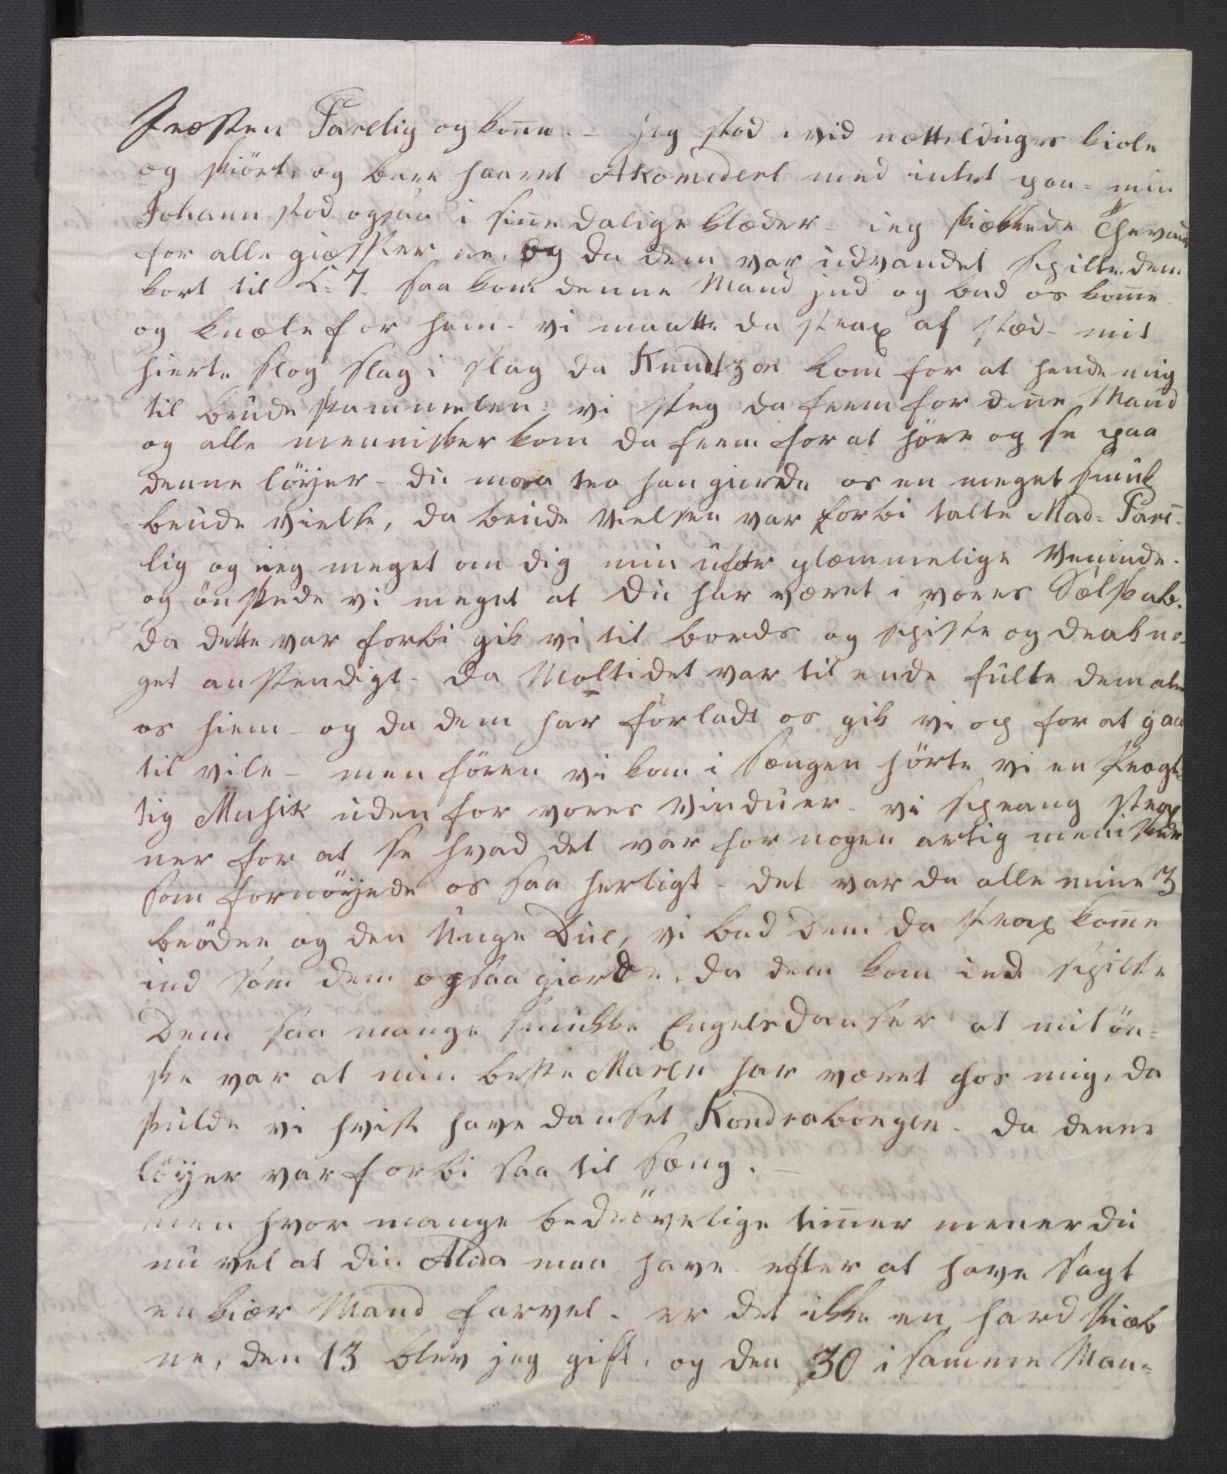 Præsten Parelig og kone. – jeg stod i vid nætteldugs kiole
og skiört, og bare haaret Akomedert med intet paa – min
Johann stod ogsaa i sine dalige klæder – ieg skiænkede Thevand
for alle giæsterne, og da dem var udvandet spilte dem
kort til L: 7. saa kom denne Mand ind og bad os kome
og knæle for ham – vi maatte da strax af stæd – mit
hierte slog slag i slag da Knudtzon kom for at hende mig
til brude skammelen; vi steg da frem for dene Mand
og alle mennisker kom da frem for at höre og se paa
denne löyer – du maa tro han giorde os en meget smuk
brude vielse, da brude vielsen var forbi talte Mad= Pare=
lig og ieg meget om dig min ufor glæmmelige Veninde.
og önskede vi meget at du har været i vores Sælskab.
da dette var forbi gik vi til bords og spiste og drak no=
get anstendigt – da Moltidet var til ende fulte dem alle
os hiem – og da dem har forladt os gik vi op for at gaa
til vile – men fören vi kom i Sængen hörte vi en Prægh=
tig Musik uden for vores Vinduer – vi sprang strax
ner for at se hvad det var for nogen artig menisker
som fornöyede os saa herligt – det var da alle mine 3
bröder og den Unge Due, vi bad Dem da strax kome
ind som dem ogsaa giorde, da dem kom ind spilte
Dem saa mange smukke Engelsdanser at mit ön=
ske var at min beste Maren har været hos mig, da
skulde vi hvist have danset Kondrabongen – da denne
löyer var forbi saa til Sæng. –
men hvor mange bedrövelige timer mener du
nu vel at din Alida maa have efter at have sagt
en kiær Mand farvel – er det ikke en hard skiæb
ne, den 13 blev jeg gift, og den 30 i samme Maa=